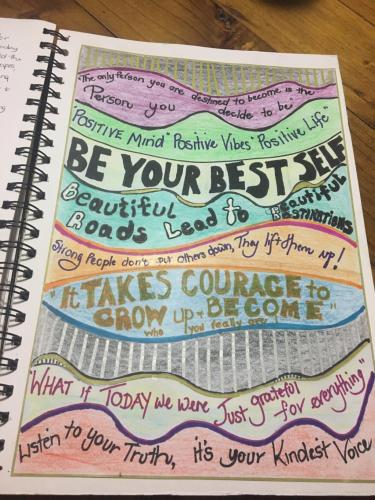 "The only Person you are destined to become is the
Person you decide to be"
"POSITIVE MinD" Positive Vibes "Positive Life"
BE YOUR BEST SELF
Beautiful
Roads Lead to
Beautiful
DESTINATIONS
Strong People don't put others down, They lift them up!
"It TAKES COURAGE to
GROW up + BECOME"
who you really are
WHAT if TODAY we were Just grateful
for everything"
Listen to your Truth, it's your Kindest Voice